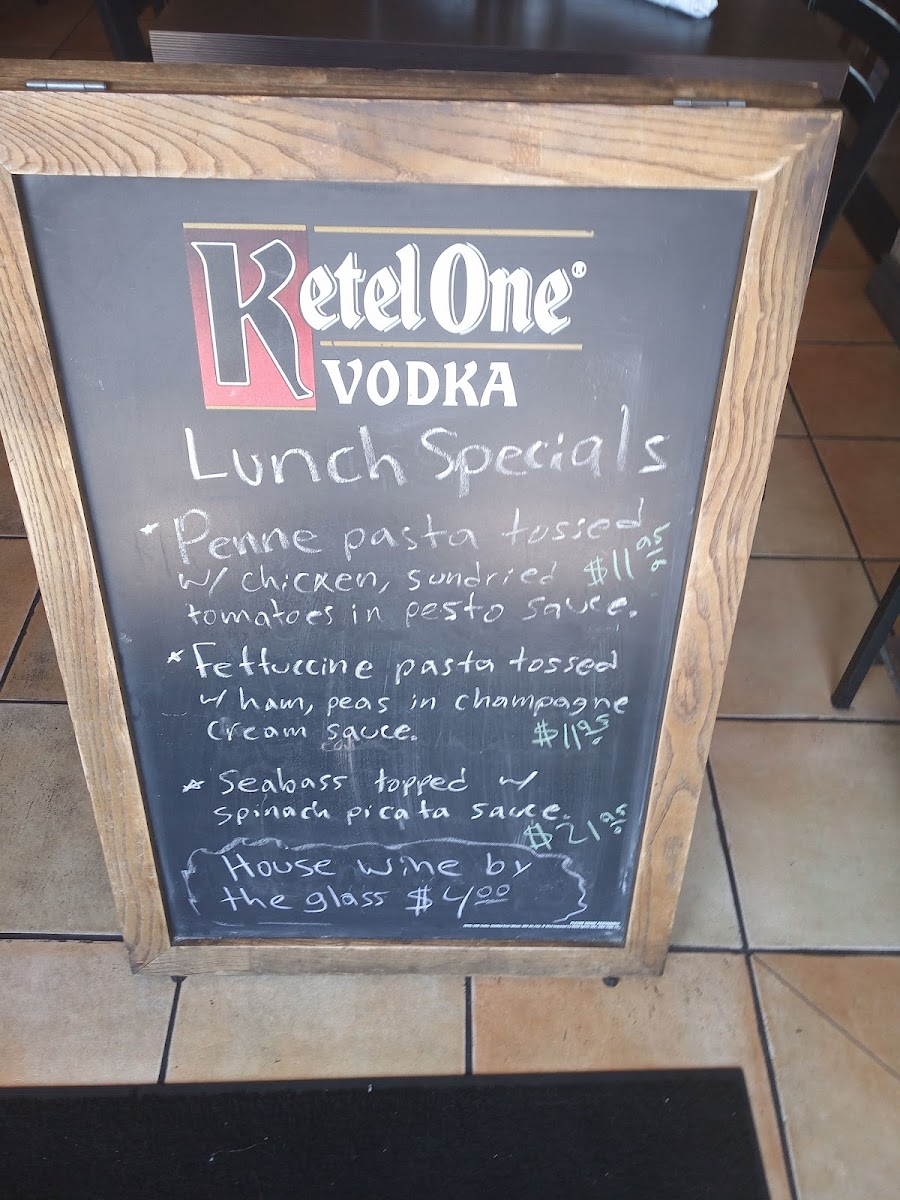 Ketel One®
VODKA
Lunch Specials
* Penne pasta tossed
w/ chicken, sundried $11.95
tomatoes in pesto sauce.
* Fettuccine pasta tossed
w/ ham, peas in champagne
cream sauce. $11.95
* Seabass topped w/
spinach picata sauce.
$21.95
House wine by
the glass $4.00